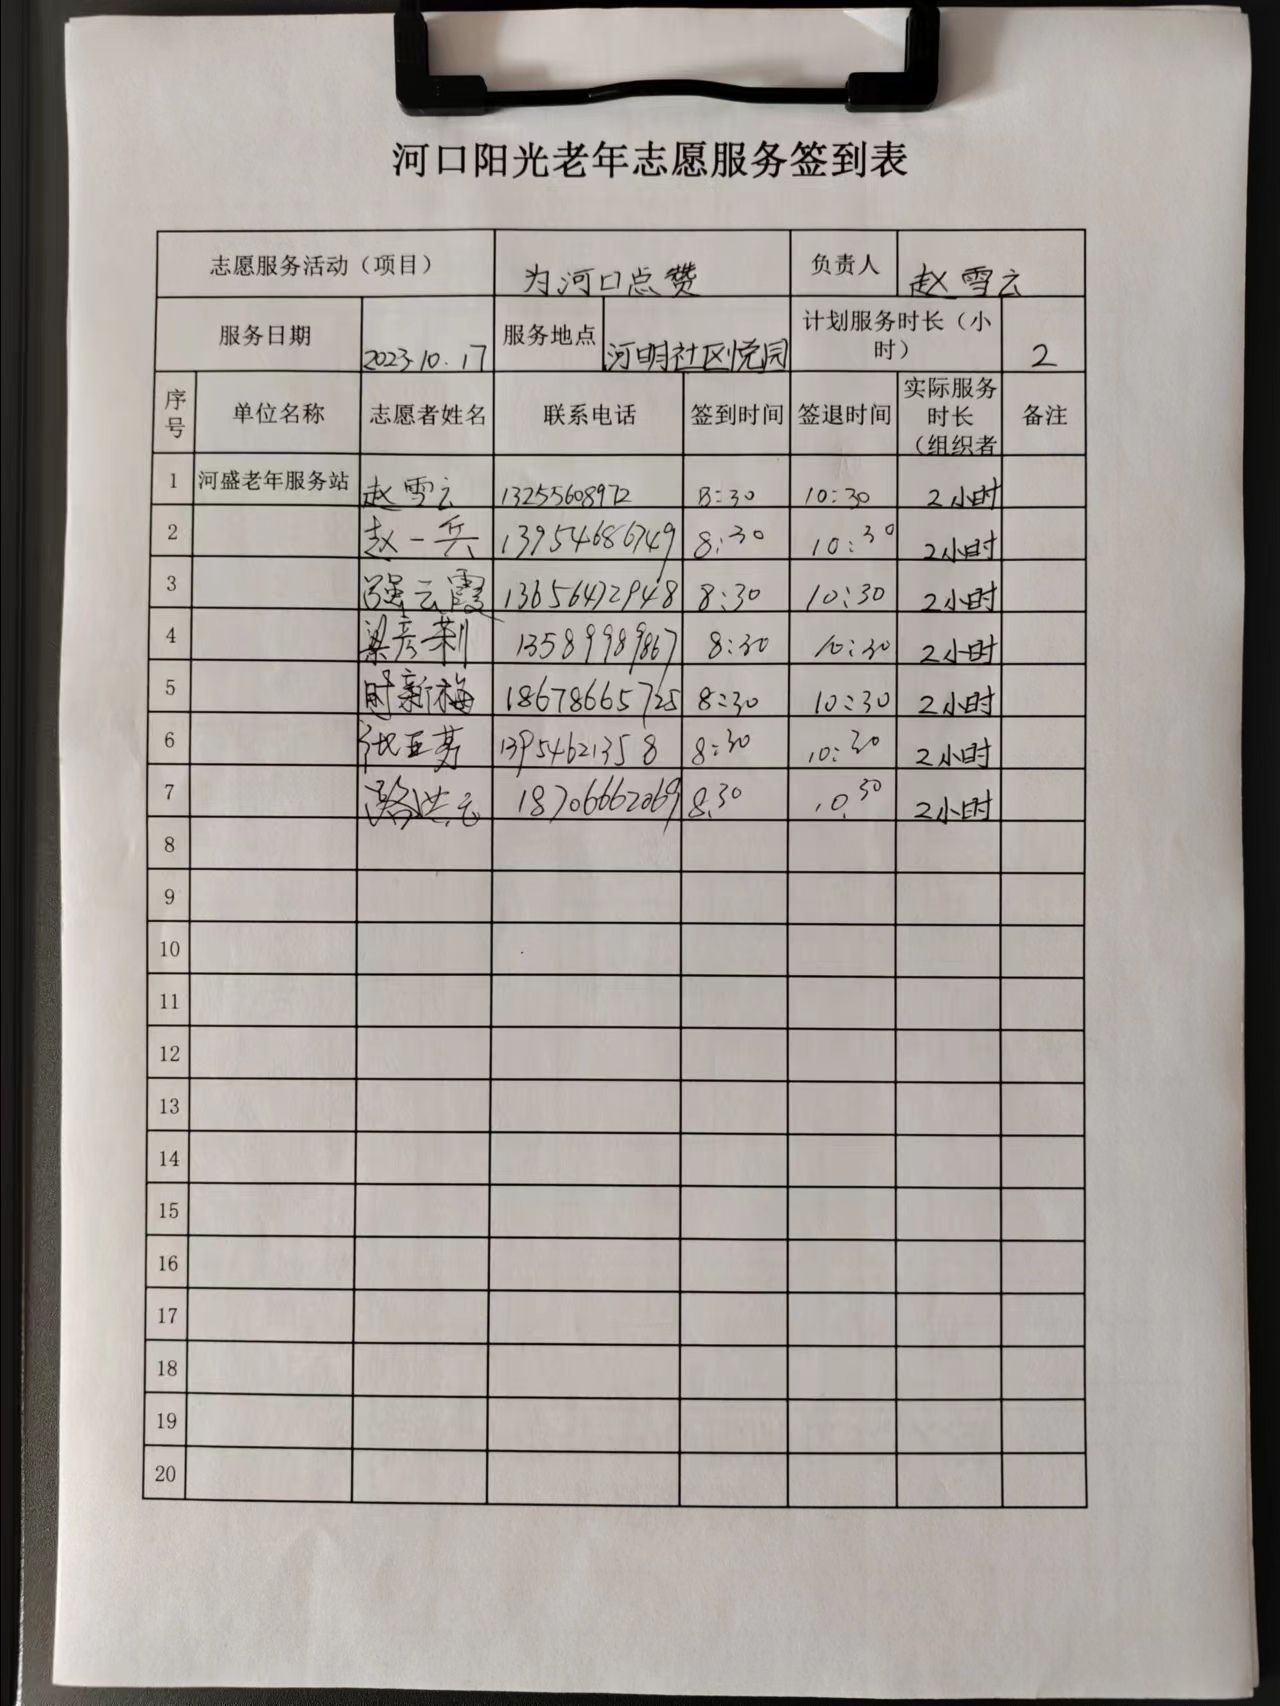 河口阳光老年志愿服务签到表
志愿服务活动（项目） 为河口点赞 负责人 赵雪云
服务日期 2023.10.17 服务地点 河明社区悦园 计划服务时长（小时） 2
序号 单位名称 志愿者姓名 联系电话 签到时间 签退时间 实际服务时长（组织者 备注
1 河盛老年服务站 赵雪云 13255608972 8:30 10:30 2小时
2 赵一兵 13954686749 8:30 10:30 2小时
3 强云霞 13656472948 8:30 10:30 2小时
4 梁彦莉 13589989867 8:30 10:30 2小时
5 时新梅 18678665725 8:30 10:30 2小时
6 13954621358 8:30 10:30 2小时
7 18706662069 8:30 10:30 2小时
8
9
10
11
12
13
14
15
16
17
18
19
20